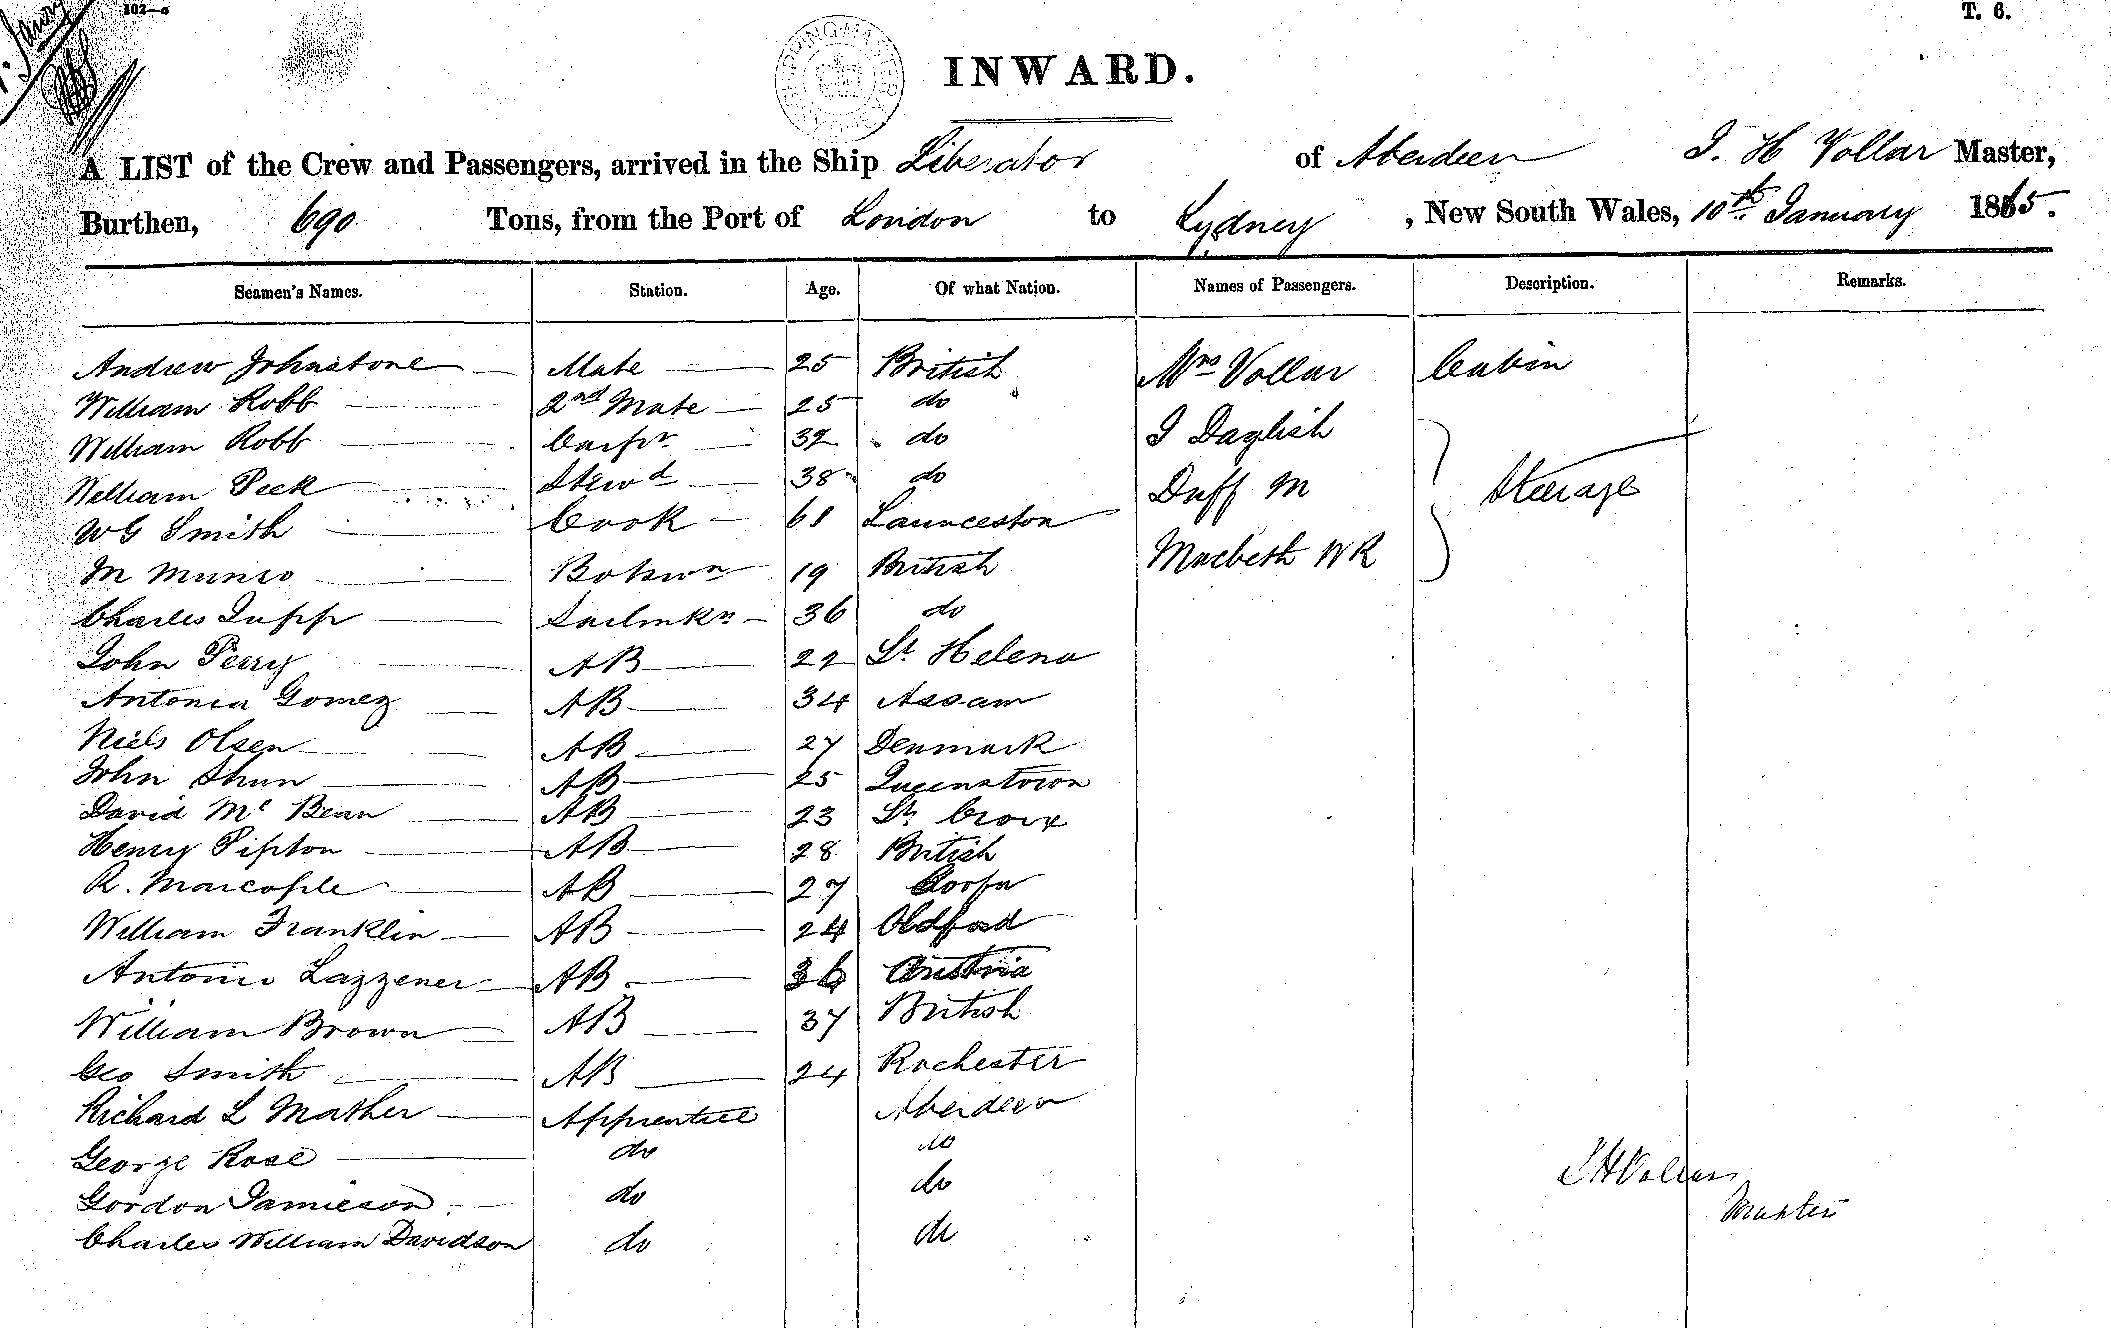 102—a
T. 6.
INWARD.
A LIST of the Crew and Passengers, arrived in the Ship Liberator of Aberdeen J. H Vollar Master,
Burthen, 690 Tons, from the Port of London to Sydney, New South Wales, 10th January 1865.
Seamen's Names. Station. Age. Of what Nation. Names of Passengers. Description. Remarks.
Andrew Johnstone Mate 25 British Mrs Vollar Cabin
William Robb 2nd Mate 25 do
William Robb Carpr 32 do J Daglish
William Peck Stewd 38 do Duff M Steerage
W G Smith Cook 61 Launceston
M Munro Botswn 19 British Macbeth W R
Charles Tupp Sailmkr 36 do
John Perry AB 22 St Helena
Antonia Gomez AB 34 Assam
Niels Olsen AB 27 Denmark
John Shun AB 25 Queenstown
David Mc Bean AB 23 St Croix
Henry Pipton AB 28 British
R. AB 27 Corfu
William Franklin AB 24 Oldford
Antonio Lazzener AB 36 Austria
William Brown AB 37 British
Geo Smith AB 24 Rochester
Richard L Mather Apprentice Aberdeen
George Rose do do
Gordon Jamieson do do
Charles William Davidson do do
J H Vollar
Master